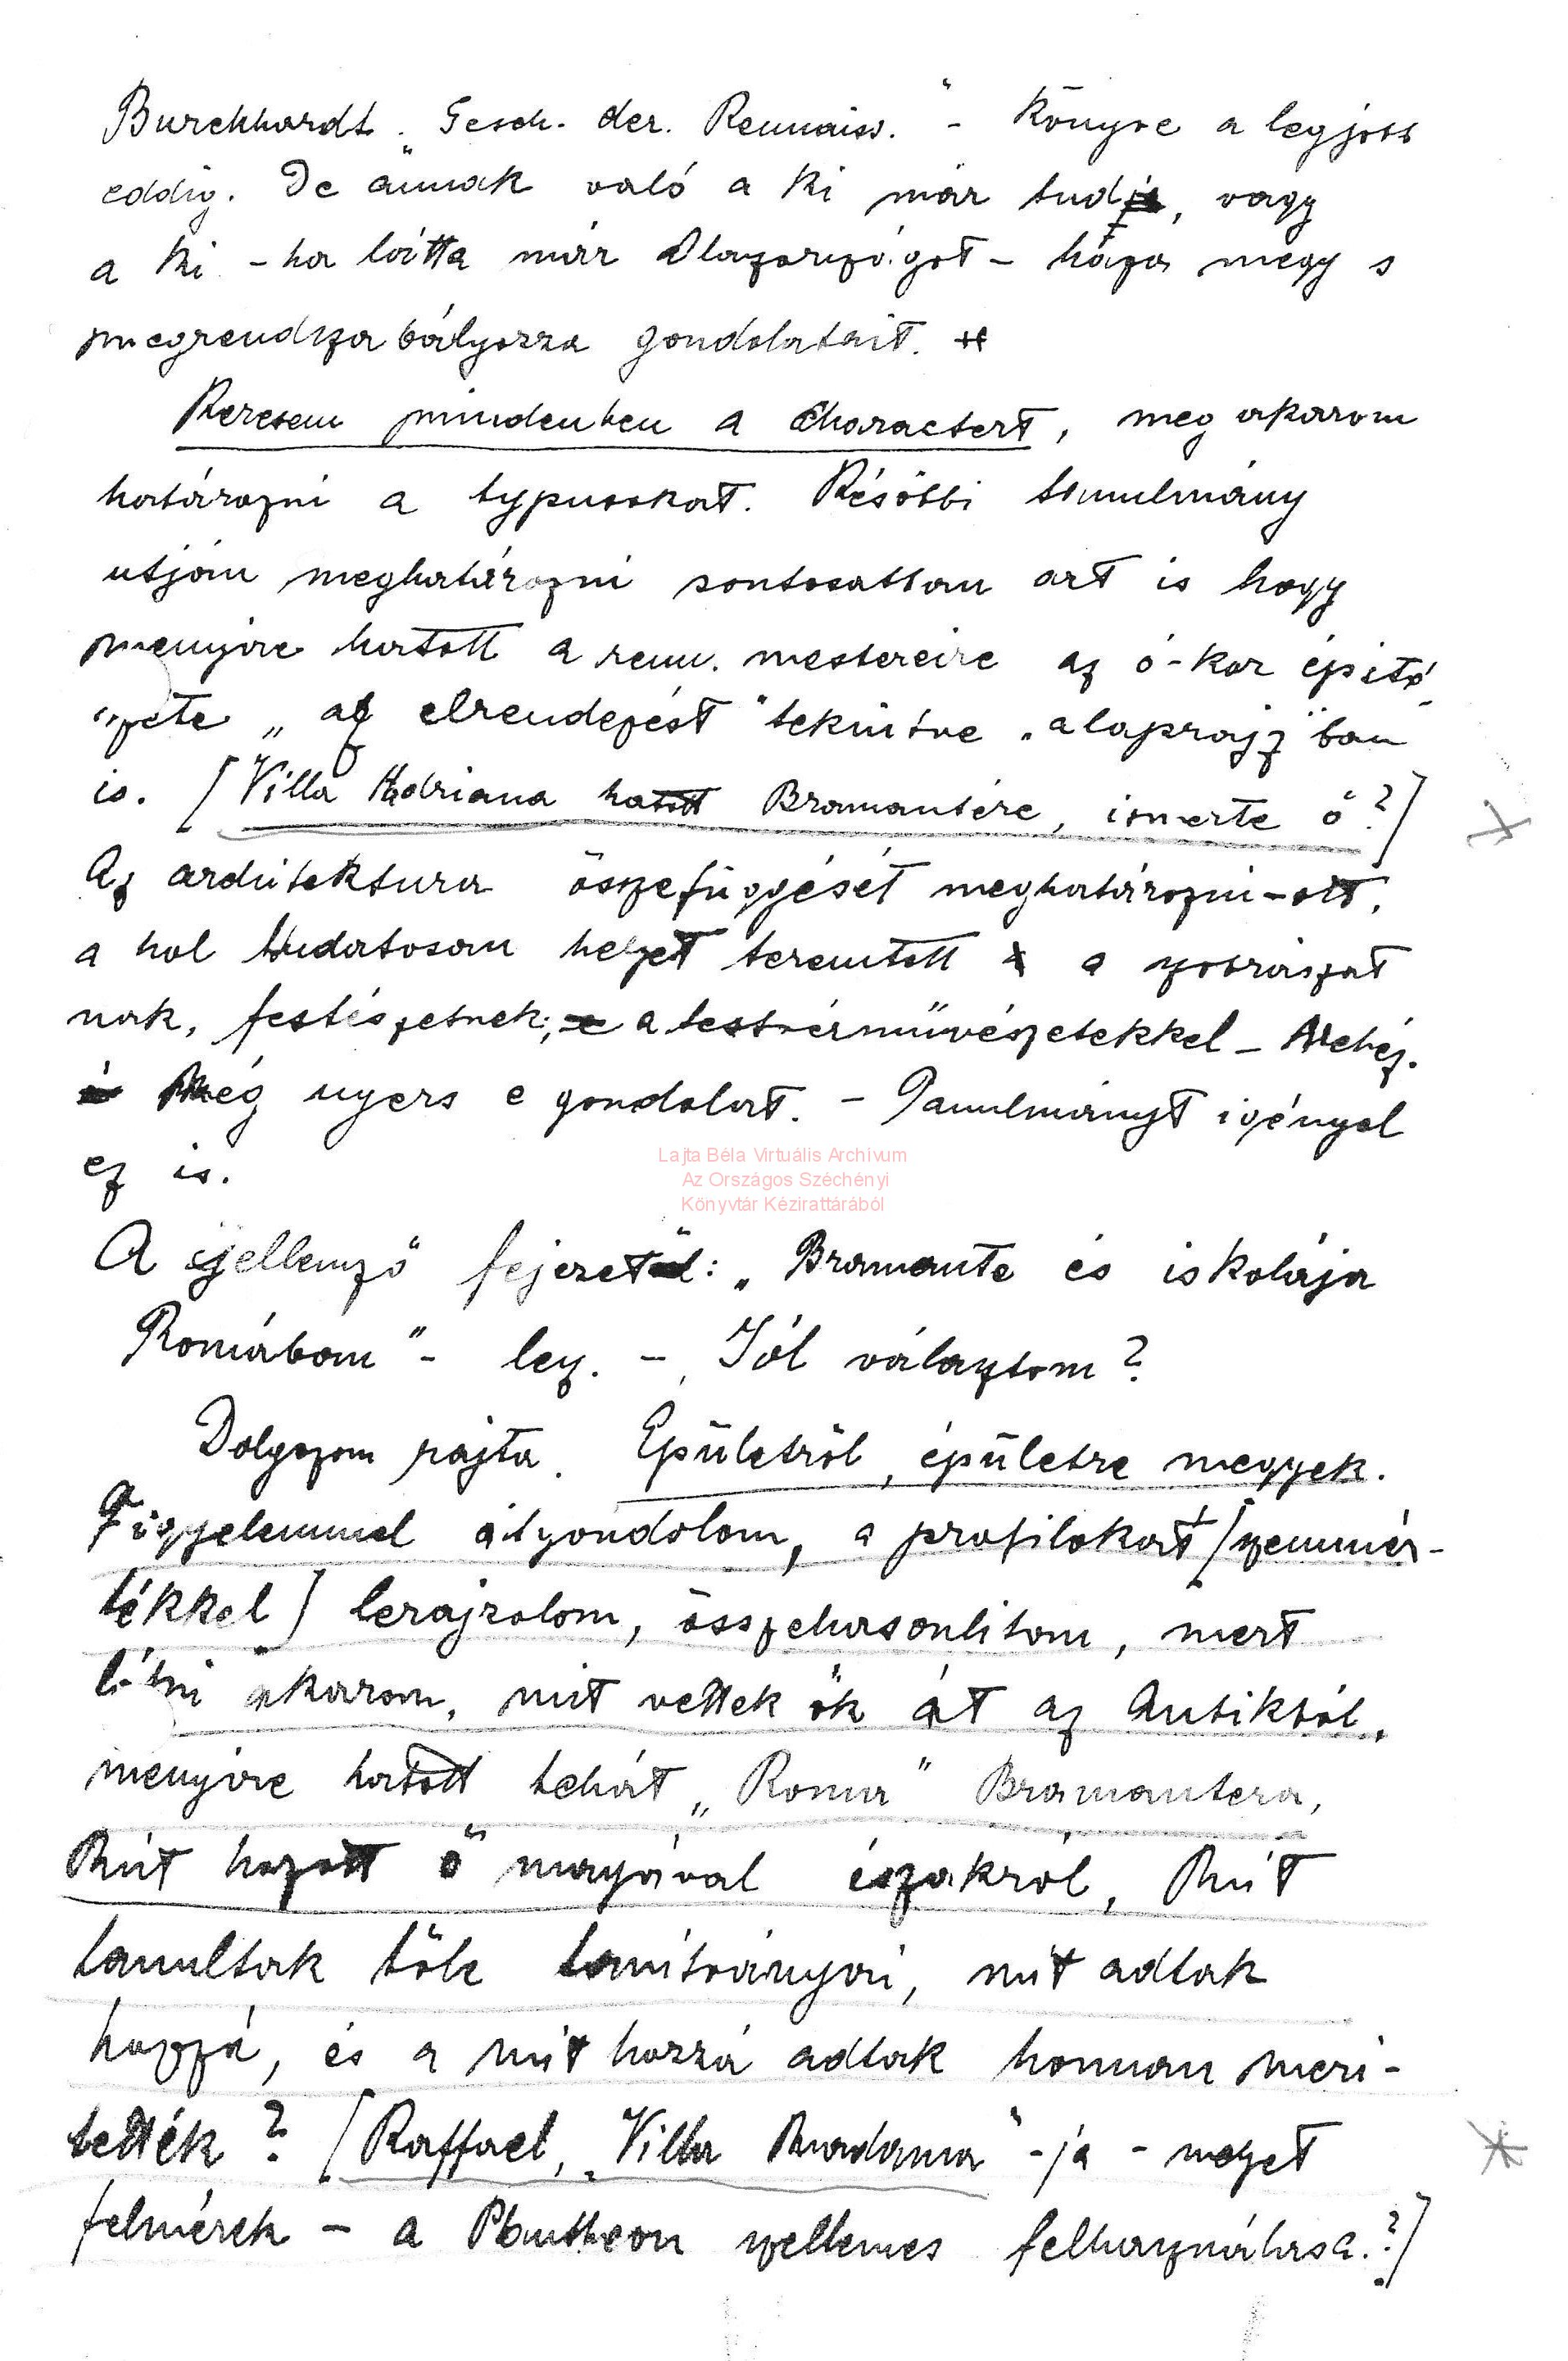 Burckhardt „Gesch. der. Rennaiss." - Könyve a legjobb
eddig. De annak való a ki már tudja, vagy
a ki - ha látta már Olaszországot - haza megy s
megrendszabályozza gondolatait.
Keresem mindenben a charactert, meg akarom
határozni a typusokat. Későbbi tanulmány
utján meghatározni pontosabban azt is hogy
menyire hatott a renn. mestereire az ó-kor épitő
szete „az elrendezést" tekintve „alaprajz"ban
is. [Villa Hadriana hatott Bramantére, ismerte ő?]
Az architektura összefüggését meghatározni - ott,
a hol tudatosan helyet teremtett a szobrászat
nak, festészetnek; a testvérművészetekkel - Nehéz.
Még nyers e gondolat. - Tanulmányt igényel
ez is.
Lajta Béla Virtuális Archívum
Az Országos Széchényi
Könyvtár Kézirattárából
A jellemző fejezet: „Bramante és iskolája
Romában" - lesz. - Jól választom?
Dolgozom rajta. Épületről, épületre megyek.
Figyelemmel átgondolom, a profilokat [szemmér-
tékkel] lerajzolom, összehasonlitom, mert
látni akarom, mit vettek ők át az Antiktól,
menyire hatott tehát „Roma" Bramantera,
Mit hozott ő magával északról, Mit
tanultak tőle tanítványai, mit adtak
hozzá, és a mit hozzá adtak honnan meri-
tették? [Raffael, „Villa Madama"-ja - melyet
felmérek - a Pantheon szellemes felhasználása.?]